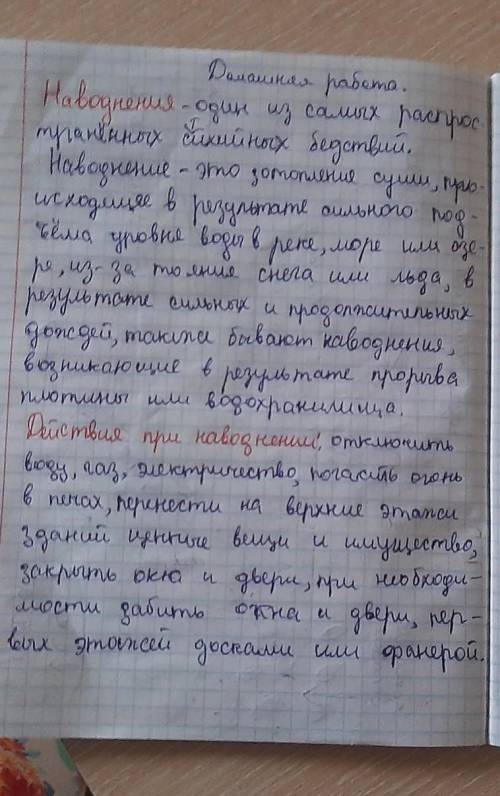 Домашняя работа.
Наводнения - один из самых распрос-
транённых стихийных бедствий.
Наводнение - это зотопление суши, про-
исходящее в результате сильного под-
ъёма уровня воды в реке, море или озе-
ре, из-за тояния снега или льда, в
результате сильных и продолжительных
дождей, также бывают наводнения,
возникающие в результате прорыва
плотины или водохранилища.
Действия при наводнении: отключить
воду, газ, электричество, погасить огонь
в печах, перенести на верхние этажи
зданий ценные вещи и имущество,
закрыть окна и двери, при необходи-
мости забить окна и двери, пер-
вых этажей досками или фанерой.